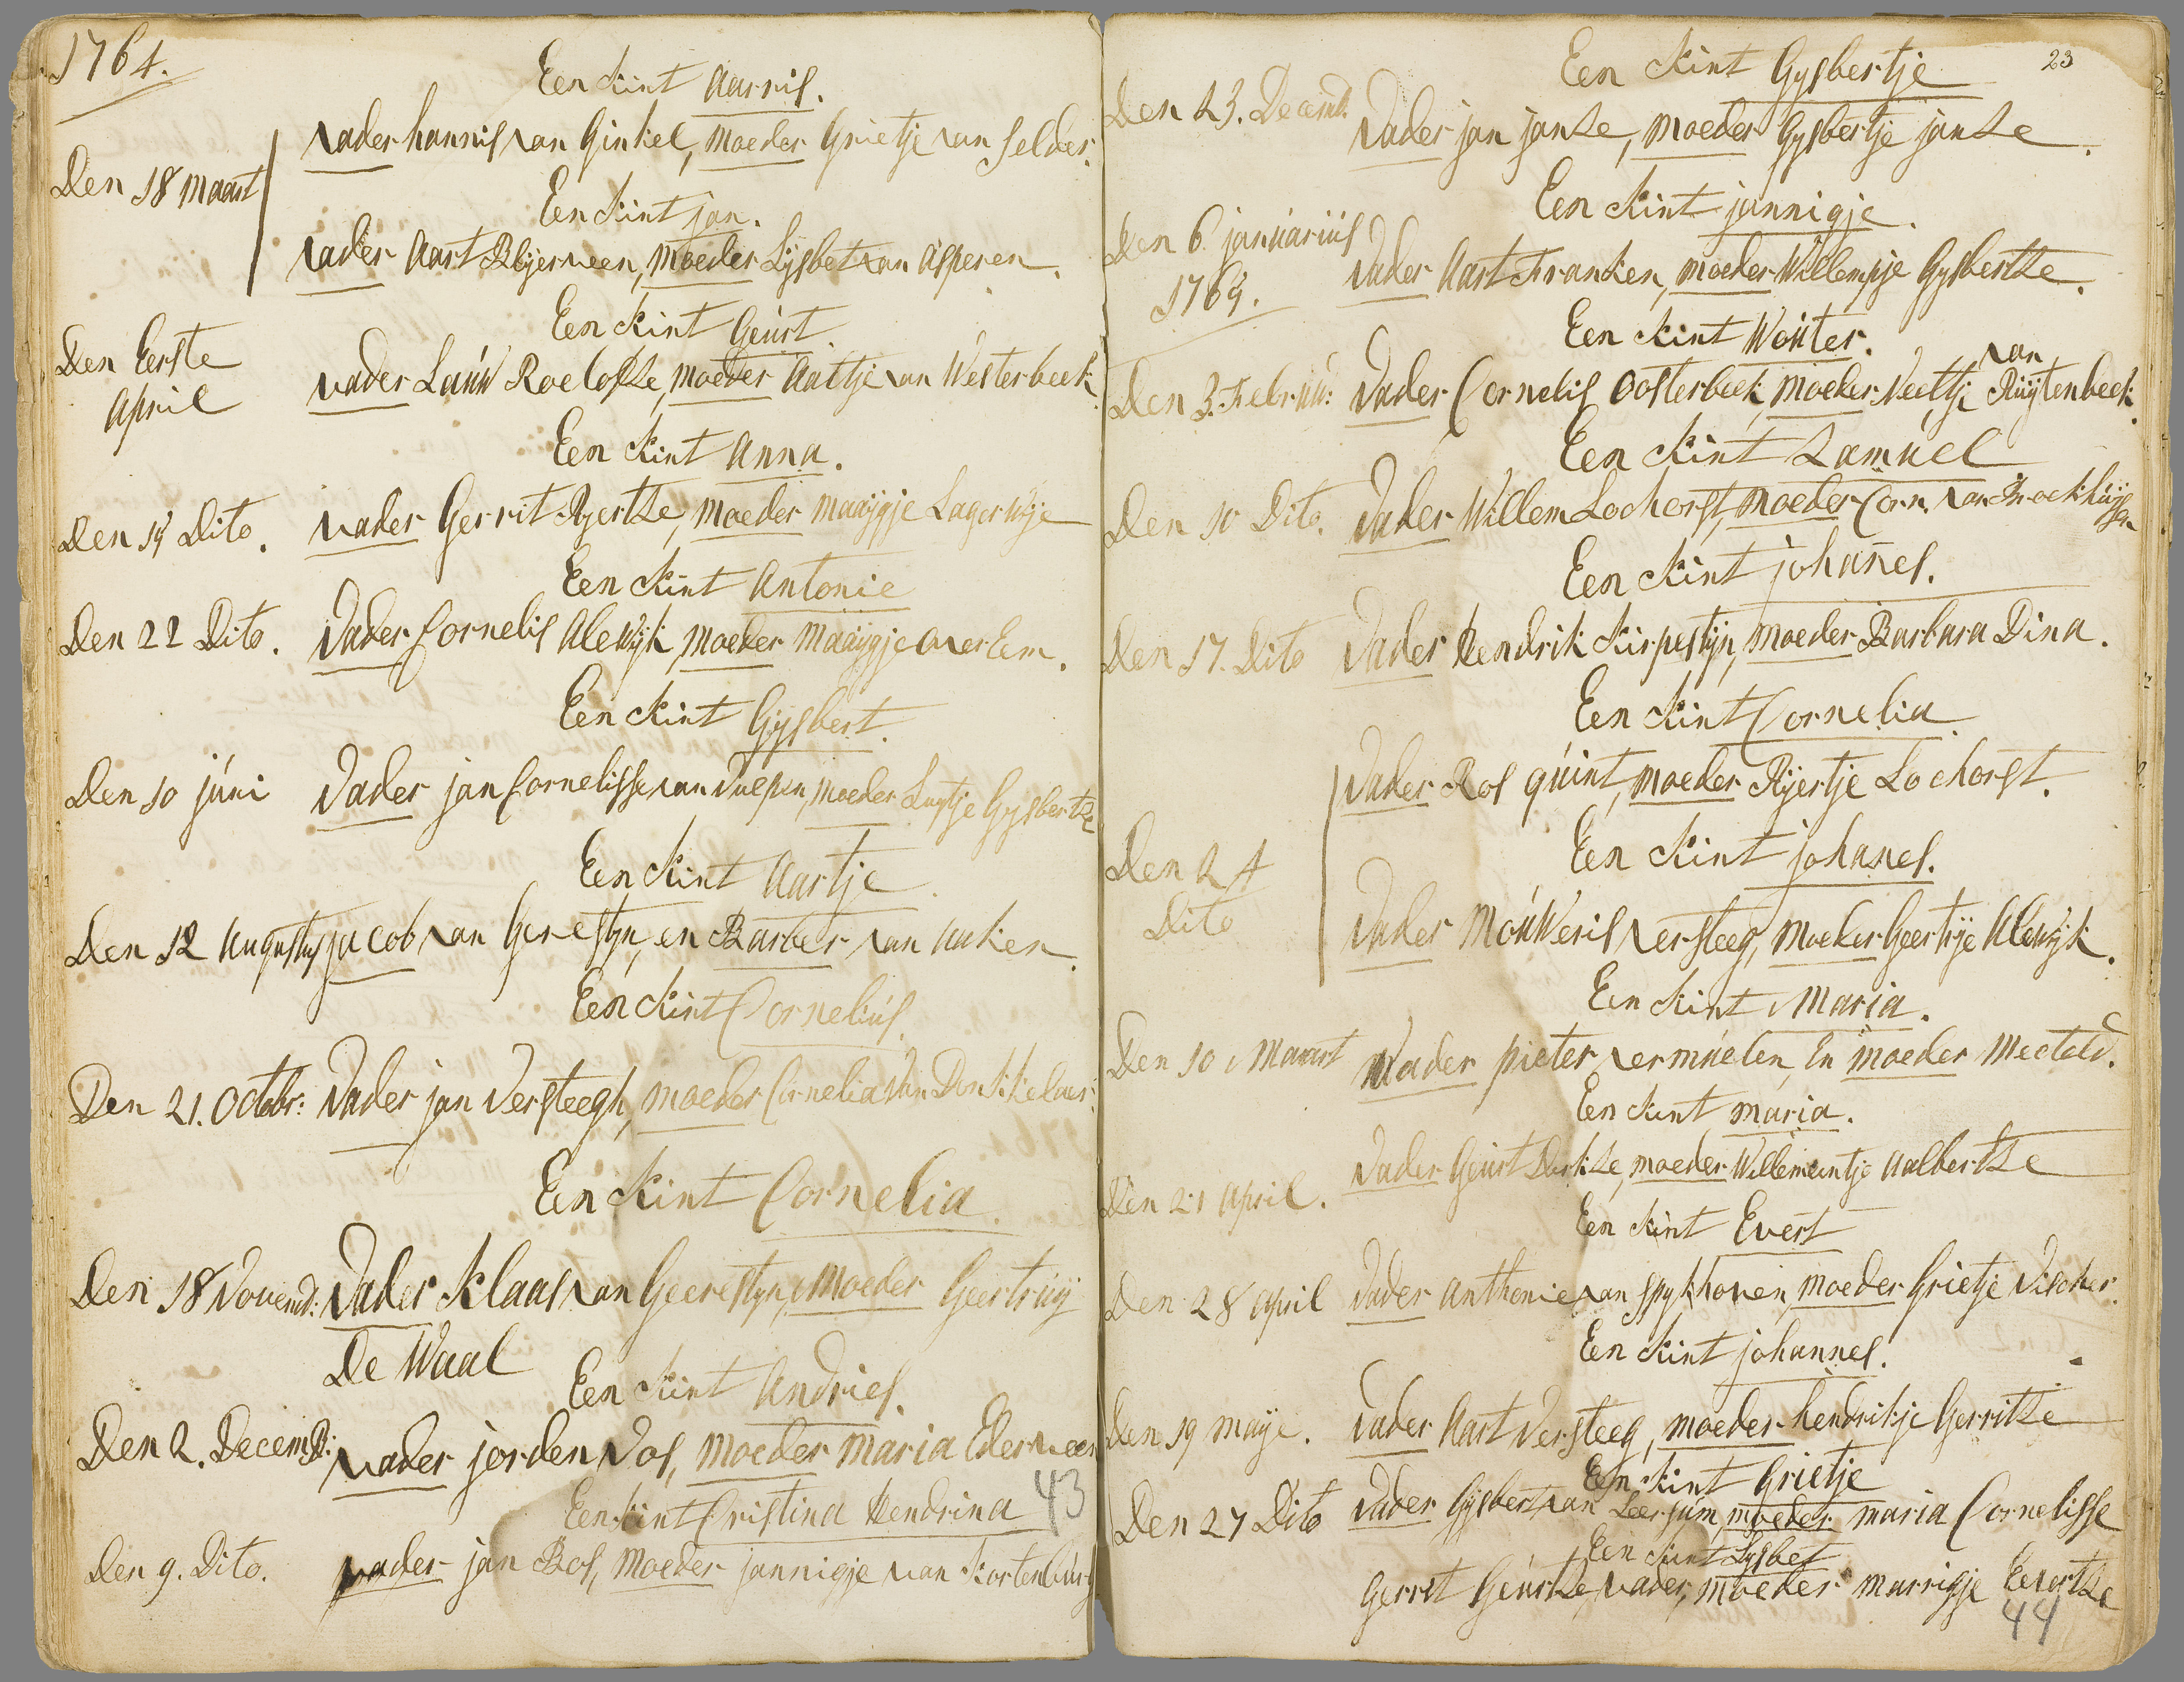 1764.
Een kint Aarnis.
vader hannis van Ginkel, moeder Grietje van Selder.
Den 18 maart
Een kint jan.
vader Aart Blijerveen, moeder Lijsbet van Asperen.
Een kint Geurt.
Den Eerste
April
vader Lauw Roelofze, moeder Aaltje van Westerbeek
Een kint Anna.
Den 15 Dito.
vader Gerrit Ryertze, moeder maaijgje Lagerwije
Een kint Antonie
Den 22 Dito.
Vader Cornelis Alewijk, moeder Maaijgje over Eem.
Een kint Gijsbert.
Den 10 juni
Vader jan Cornelisse van Vulpen, moeder Luytje Gysbertze
Een kint Aartje
Den 12 Augustus jacob van Gerestyn, en Barber van Aaken
Een kint Cornelius.
Den 21. Octobr: Vader jan Versteegh, moeder Cornelia Van Donkkelaer:
Een kint Cornelia.
Den 18 Novemb: Vader Klaas van Geerestyn, moeder Geertruij
De Waal
Een kint Andries.
Den 2. Decemb: vader jorden Vos, moeder maria Ederveen
Een kint Cristina Hendrina
43
Den 9. Dito. vader jan Bos, moeder jannigje van Kortenburg
23
Een kint Gysbertje
Den 23. Decemb. Vader jan janze, moeder Gysbertje janze.
Een kint jannigje.
Den 6 januarius
1765.
Vader Aart Franken, moeder Willempje Gysbertze.
Een kint Wouter.
Den 3. Februa: Vader Cornelis Oosterbeek, moeder Neeltje van Ruijtenbeek.
Een kint Zamuel
Den 10 Dito. Vader Willem Lochorst, moeder Corn. van Broekhuijsen
Een kint johañes.
Den 17. Dito Vader Hendrik Kirpestijn, moeder Barbara Dina.
Een kint Cornelia
Vader Ros quint, moeder Rijertje Lochorst.
Den 24
Dito
Een kint johanes.
Vader Mouweris versteeg, moeder Geertije Alewijk.
Een kint Maria.
Den 10 Maart Vader pieter vermuelen, En moeder Mecteld.
Een kint maria.
Den 21 April. Vader Geurt Dirkze, moeder Willemeintje Aalbertze
Een kint Evert
Den 28 April Vader Anthonie van Spykhoven, moeder Grietje Visscher.
Een kint johannes.
Den 19 maije. Vader Aart Versteeg, moeder hendrikje Gerritze
Een kint Grietje
Den 27 Dito Vader Gijsbert van Leersum, moeder maria Cornelisse
Een kint Lysbet
Gerret Geurtze, vader, moeder marrigje Evertze
44